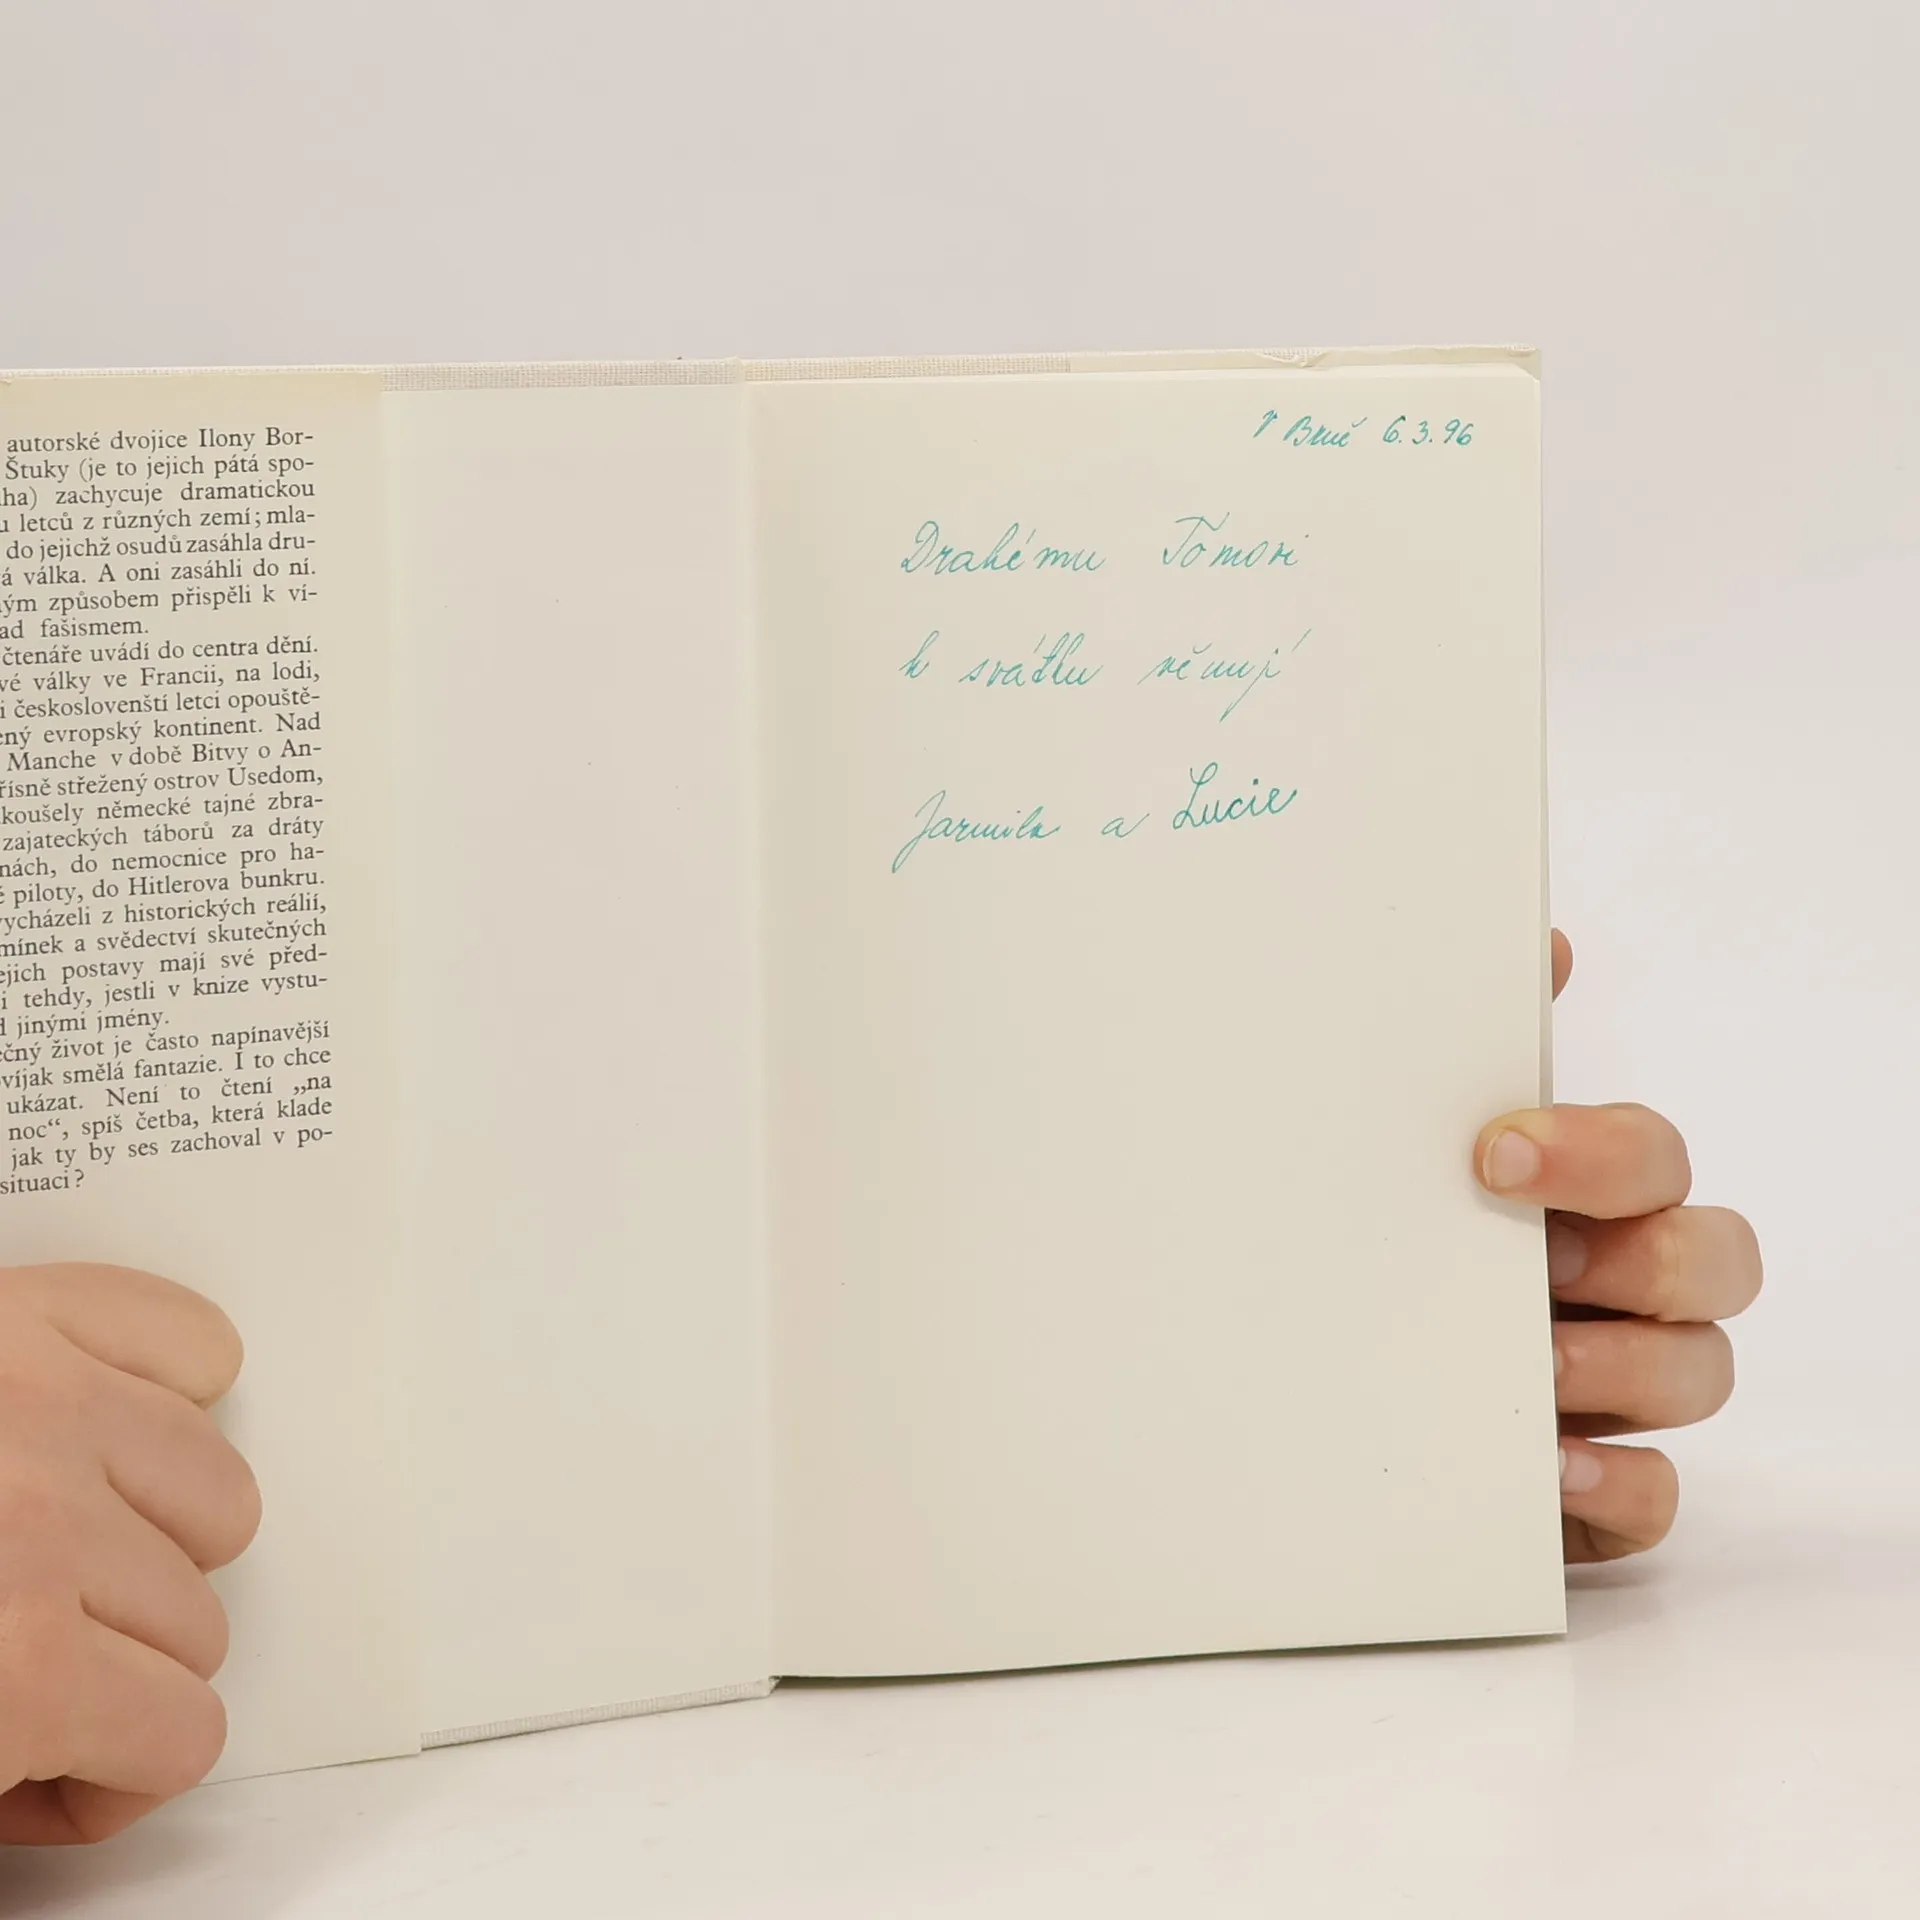 autorské dvojice Ilony Bor-
Štuky (je to jejich pátá spo-
ha) zachycuje dramatickou
u letců z různých zemí; mla-
do jejichž osudů zasáhla dru-
á válka. A oni zasáhli do ní.
ým způsobem přispěli k ví-
ad fašismem.
čtenáře uvádí do centra dění.
vé války ve Francii, na lodi,
i českoslovenští letci opouště-
ený evropský kontinent. Nad
Manche v době Bitvy o An-
řísně střežený ostrov Usedom,
koušely německé tajné zbra-
zajateckých táborů za dráty
nách, do nemocnice pro ha-
é piloty, do Hitlerova bunkru.
vycházeli z historických reálií,
mínek a svědectví skutečných
ejich postavy mají své před-
i tehdy, jestli v knize vystu-
d jinými jmény.
ečný život je často napínavější
víjak smělá fantazie. I to chce
ukázat. Není to čtení „na
noc“, spíš četba, která klade
jak ty by ses zachoval v po-
situaci?
V Brně 6.3.96
Drahému Tomovi
k svátku věnují
Jarmila a Lucie